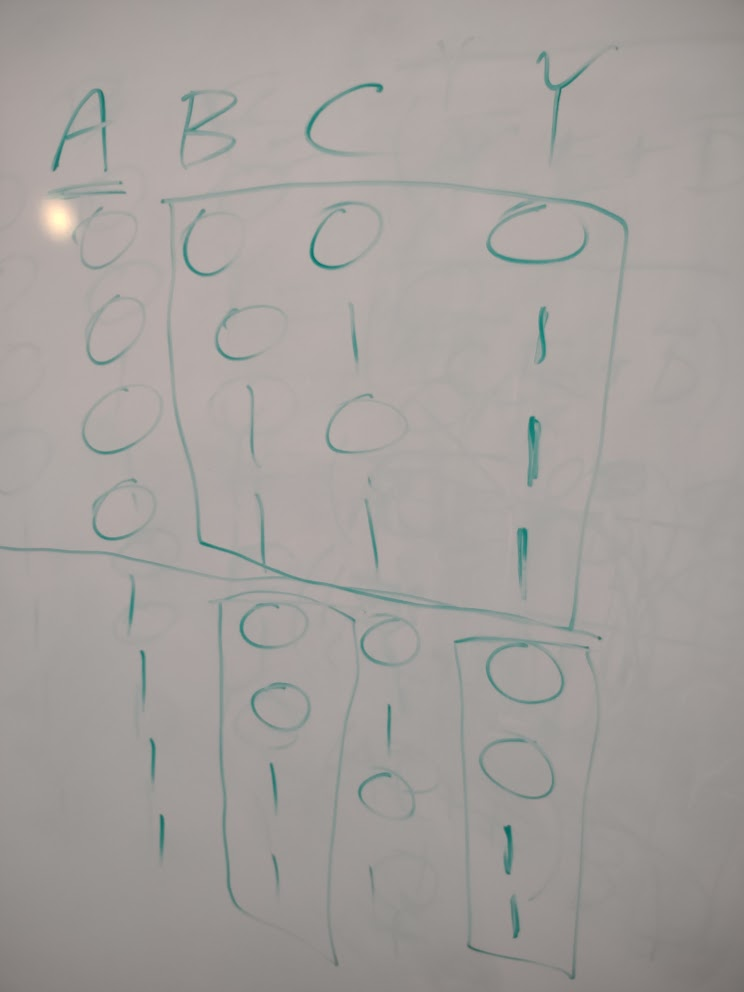 A B C Y
0 0 0 0
0 0 1 1
0 1 0 1
0 1 1 1
1 0 0 0
1 0 1 0
1 1 0 1
1 1 1 1